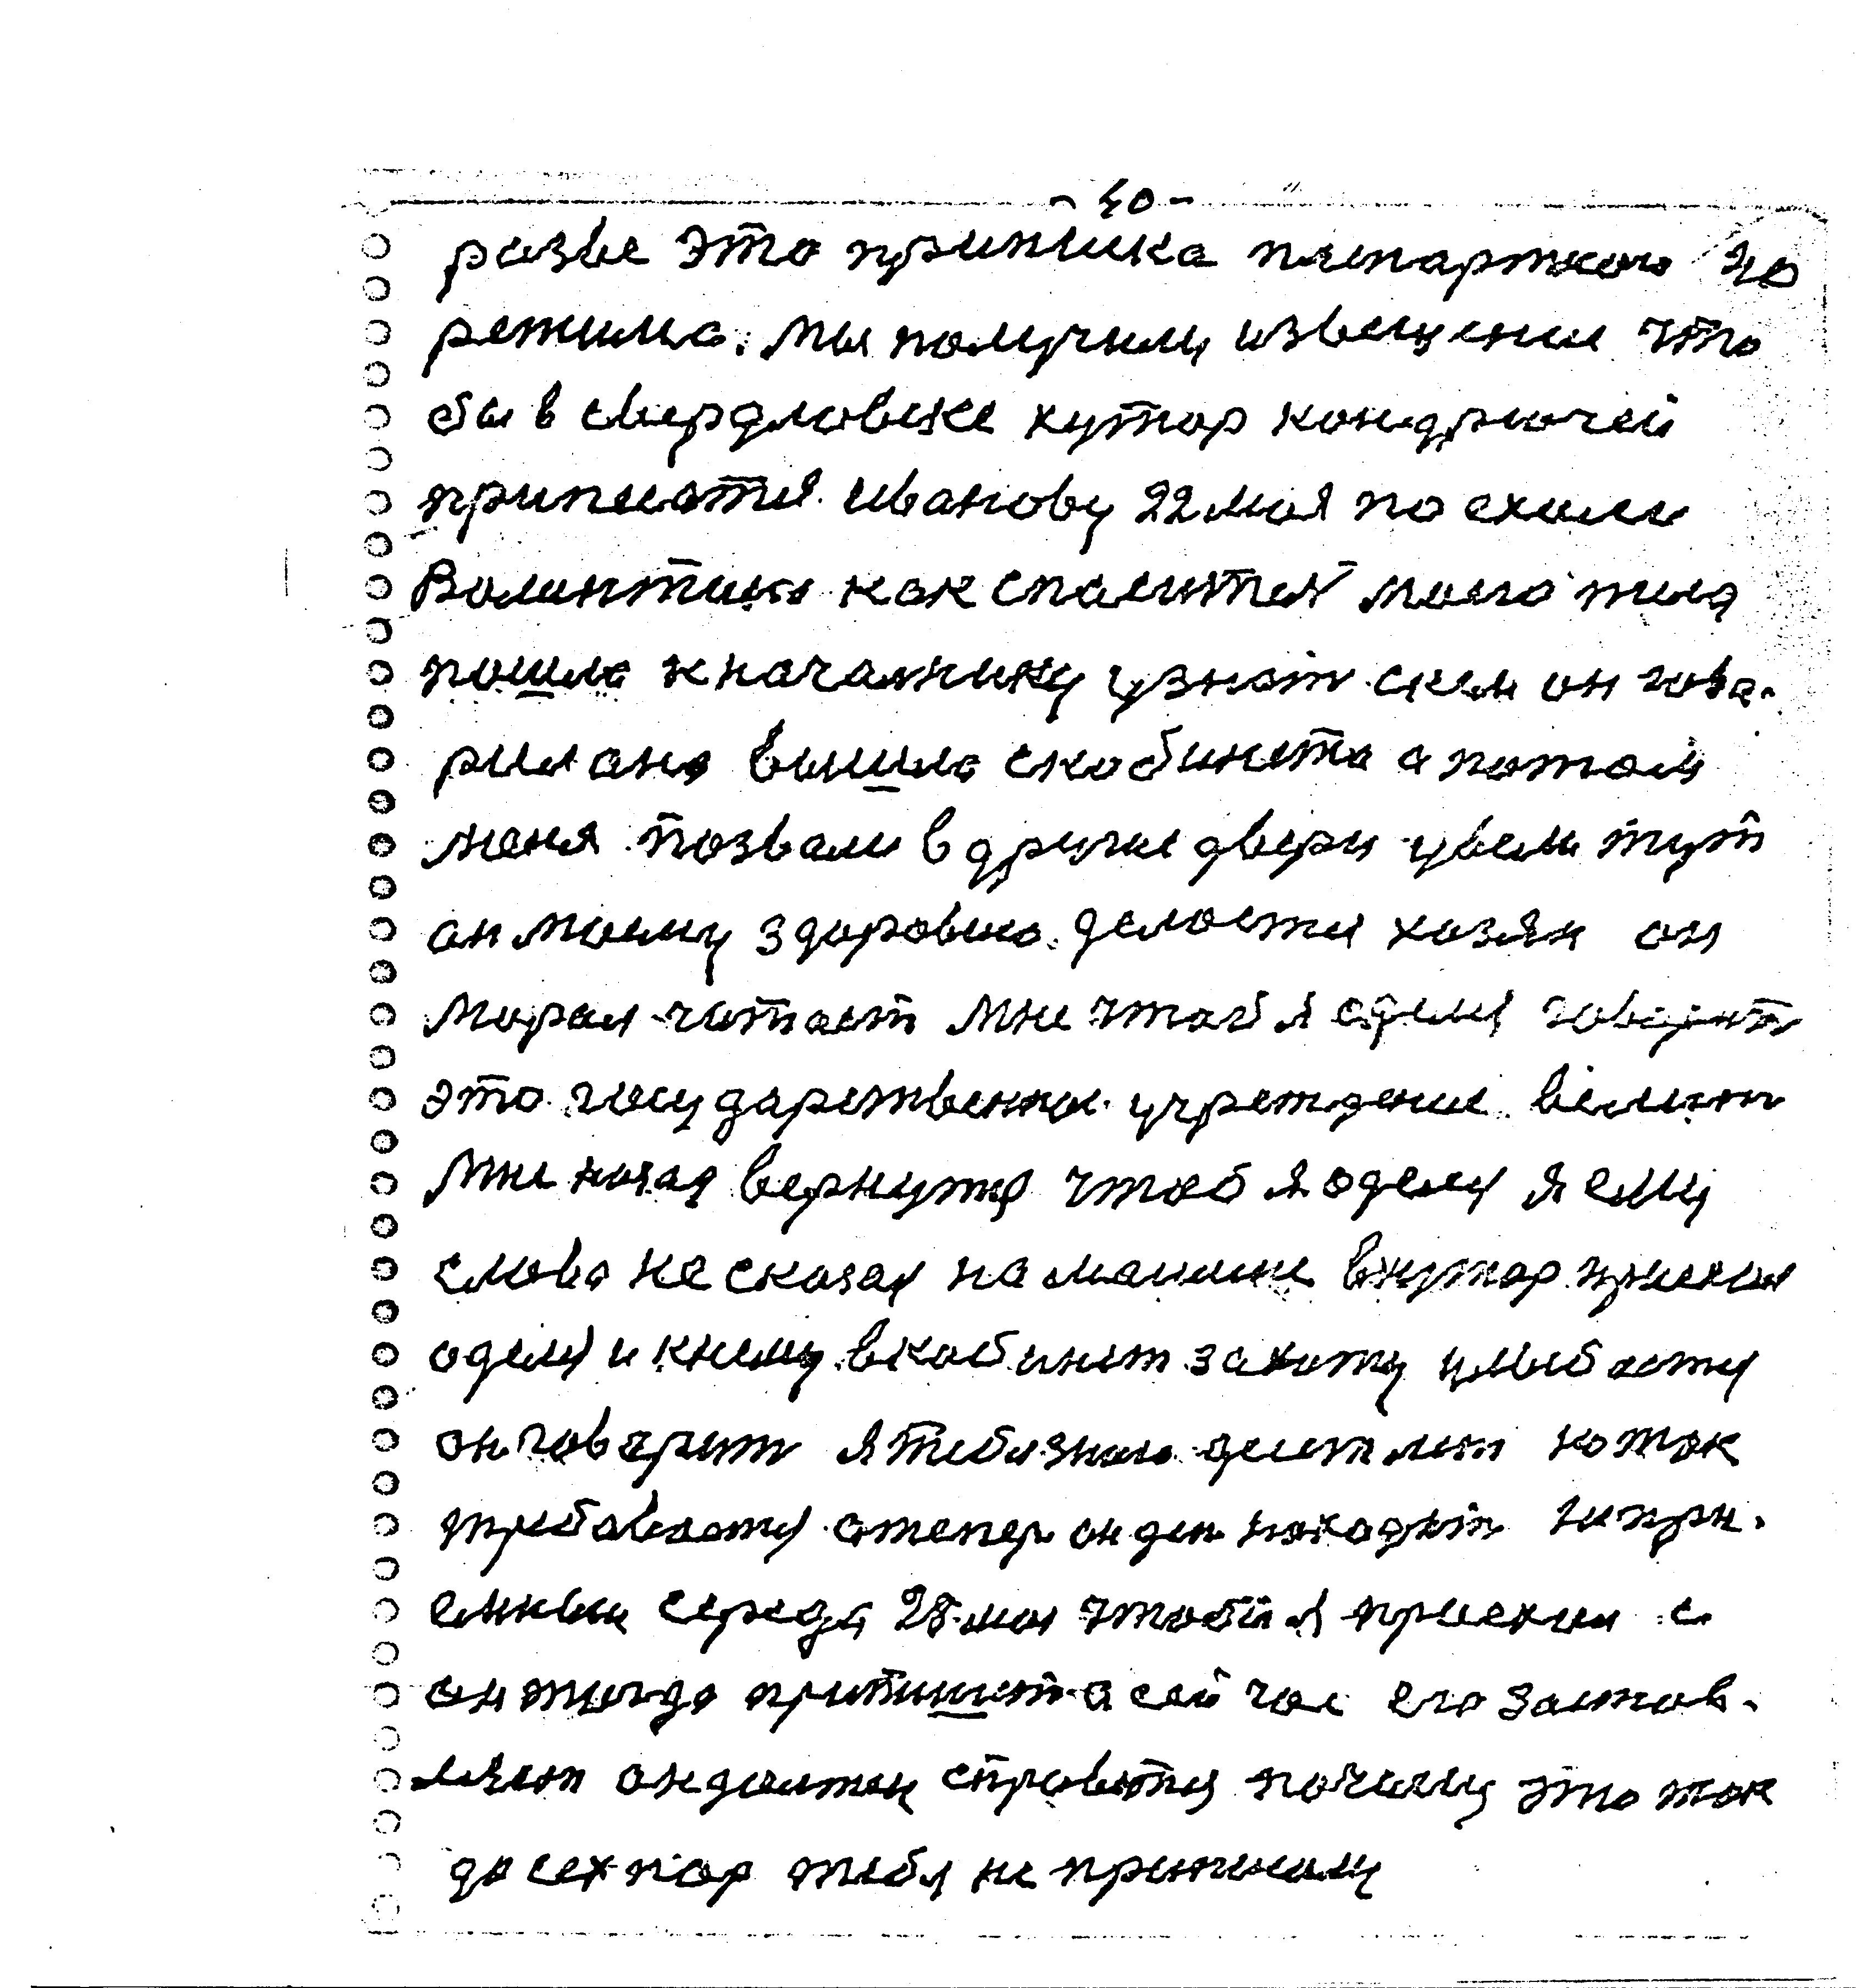 - 40 -
разве это припиика паспартного
режима. мы получили извещение что
бы в свердловске хутор кондрючей
приписатся. иванову 22 мая поехали
Волинтина как спасител моего тела
пошла к начальнику узнат скем он гова-
рил она вышла скабинета а потом
меня позвали в другие двери увели тут
он моему здоровию. делается хазяин он
морал читает мне чтоб я одел говорит
это государственное учреждение велит
мне назад вернутся чтоб я одел я ему
слова не сказал на машине вхутор приехал
одел и книму вкабинет захожу улыбается
он говорит я тибя знаю десят лет но так
требовается а тепер он ден находит не при-
емный середа 28 мая чтобы я приехал с
он тогда припишет а сей час его застав-
ляют он должен справится почему это так
до сех пор тибя не принимали